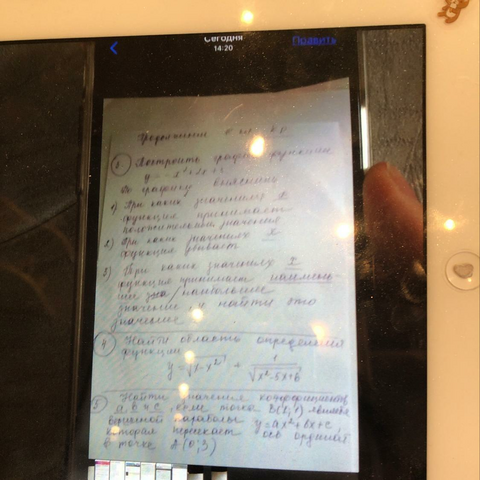 Сегодня
14:20
Править
Построить график функции
По графику выяснить
1) При каких значениях x
функция принимает
положительные значения
2) При каких значениях x
функция убывает
3) При каких значениях x
функция принимает наимень-
шее / наибольшее
значение, и найти это
значение
4 Найти область определения
функции
y = √x-x² + 1/√x²-5x+6
5 Найти значения коэффициентов
a, b и c, если точка является
вершиной параболы y=ax²+bx+c,
которая пересекает ось ординат
в точке (0;3)